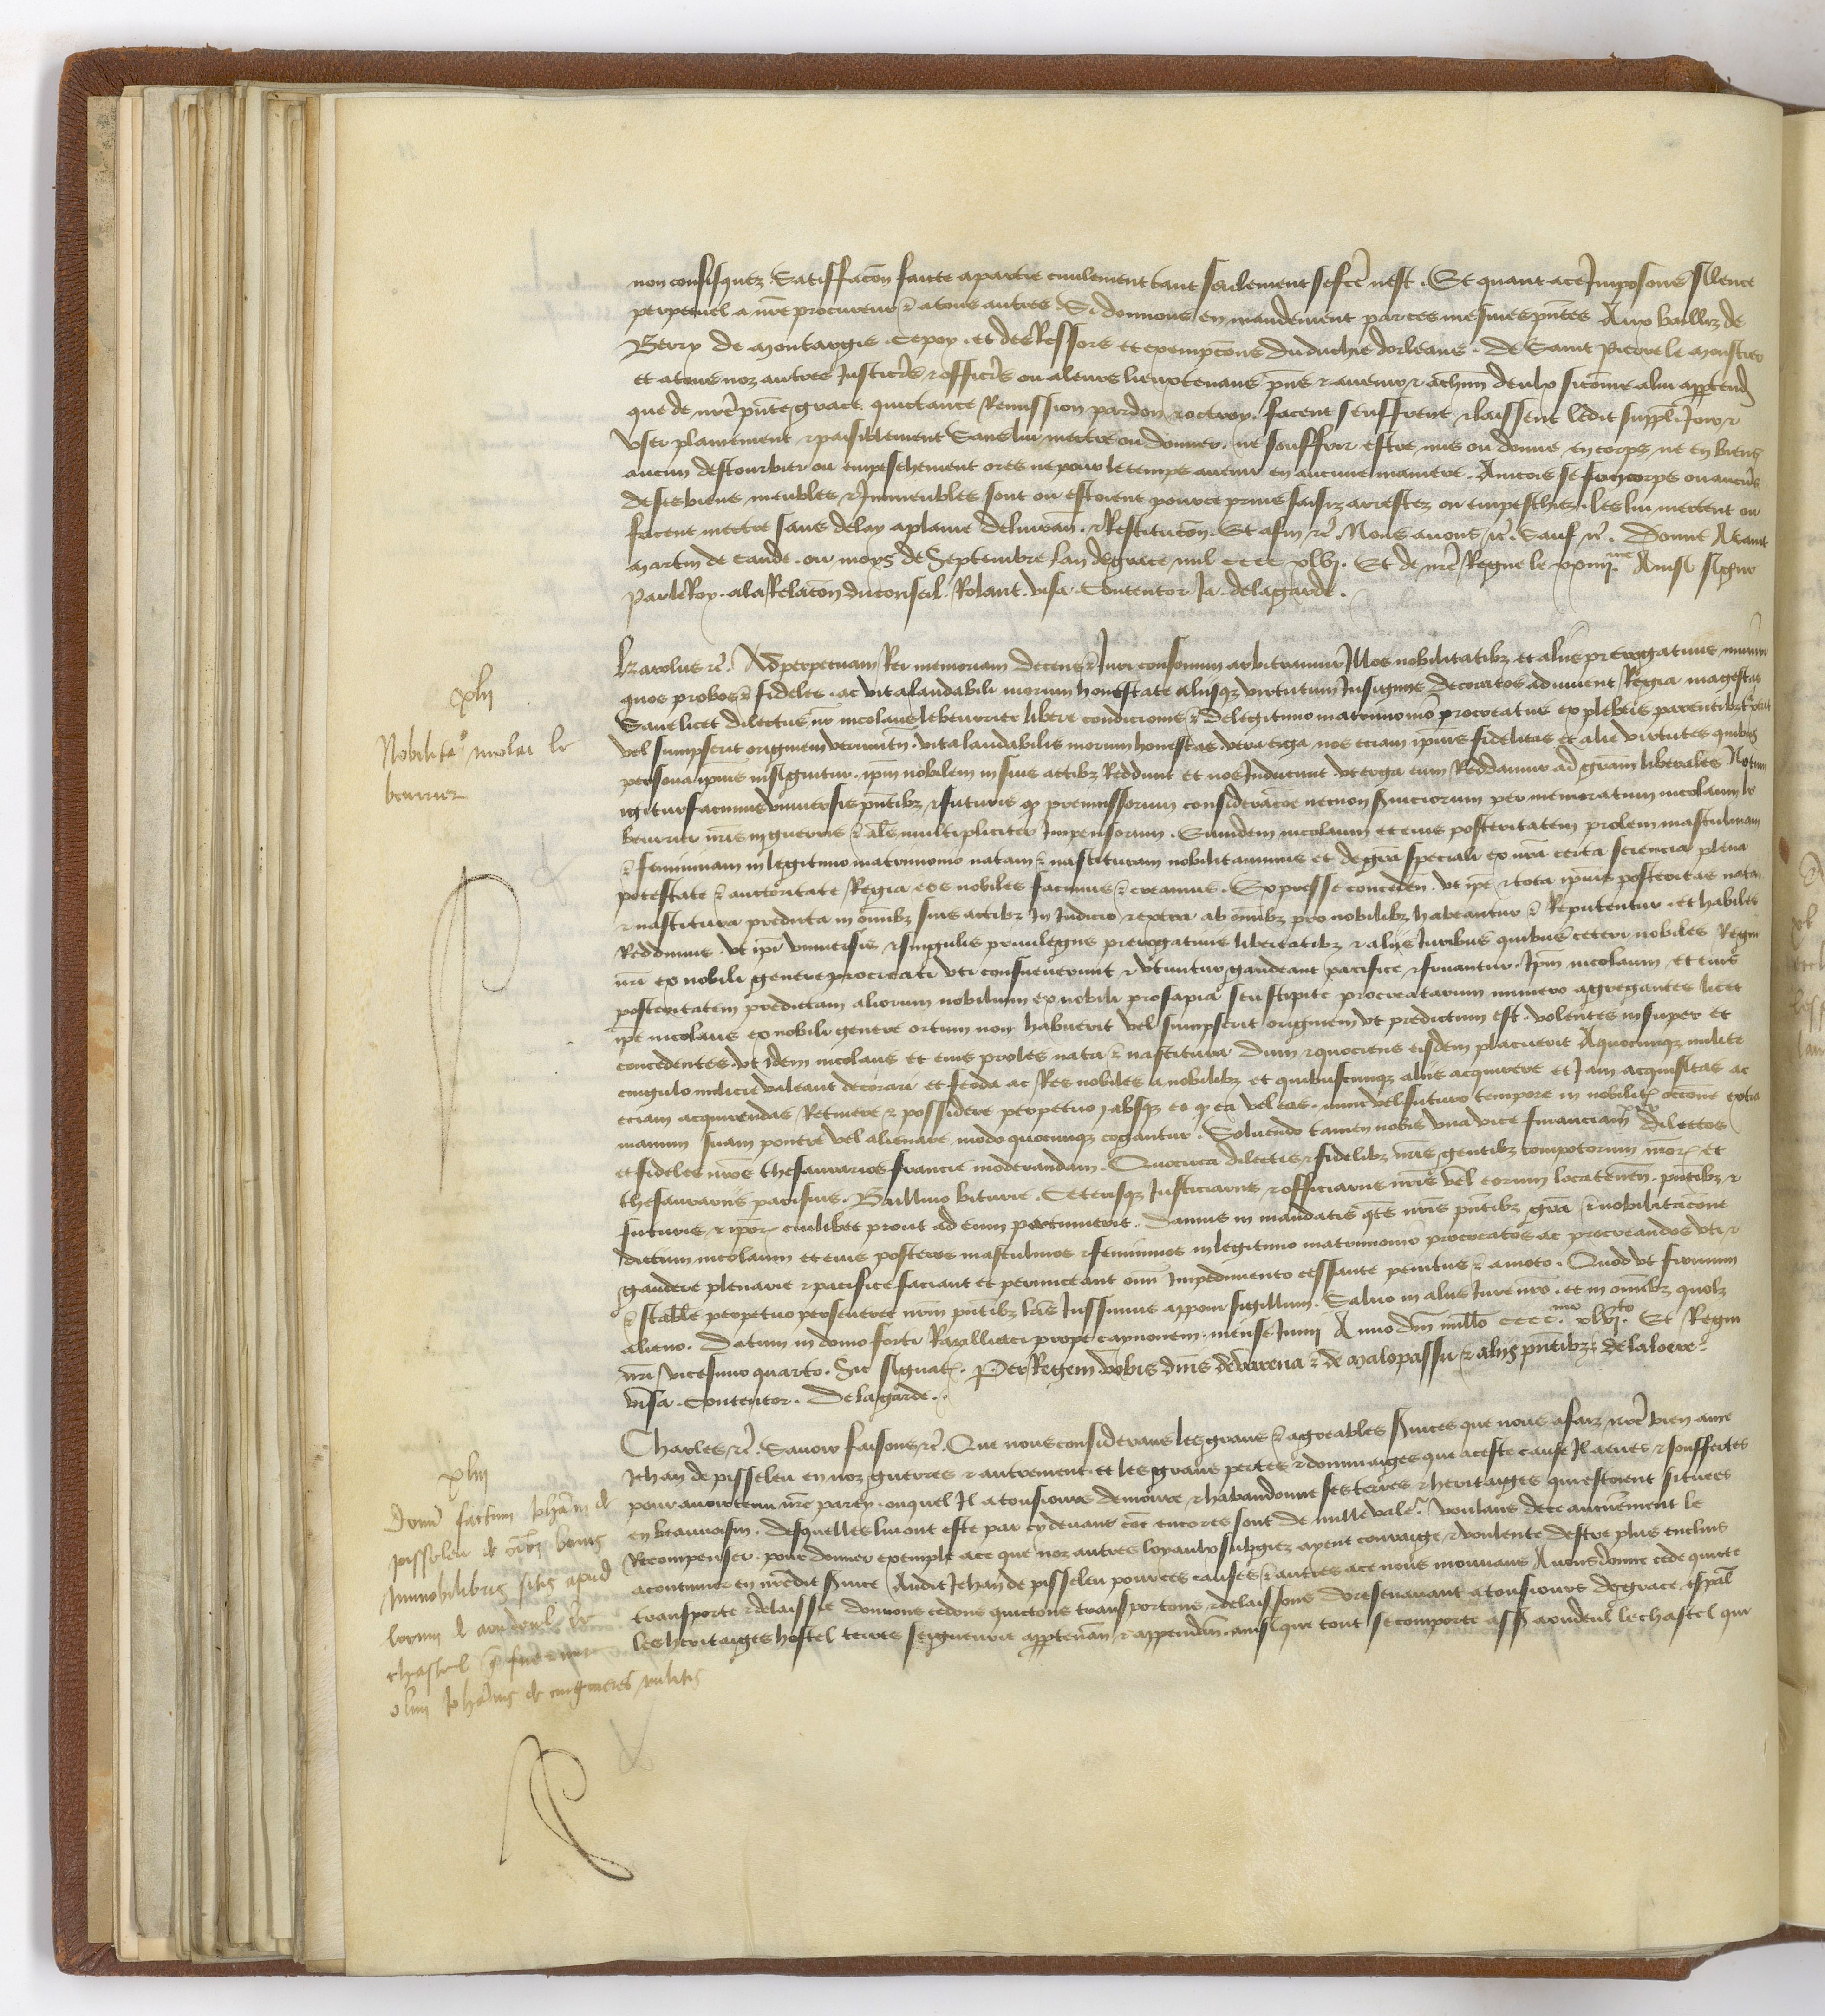 non confisquez. Satisfac̃on faicte a partie civilement tant seulement se fc̃e n'est. Et quant a ce Imposons silence
perpetuel a nr̃e procureur & a tous autres. Si donnons en mandement par ces mesmes pñtes Aux bailliz de
Berry de Montargis Cepoy. et des Ressors et exempc̃ons du duchie dorleans. de Saint Pierre le Moustier
et a tous noz autres Justic̃rs & offic̃rs ou a leurs lieuxtenans pñs & avenir & a ch̃un deulx sicõme a lui app̃tend̃
que de nr̃e pñte grace quictance Remission pardon & octroy. facent seuffrent & laissent ledit suppl̃ Joir &
User plainement & paisiblement Sans lui mectre ou donner. ne souffrir estre mis ou donne en corps ne en biens
aucun destourbier ou empeschement ores ne pour le temps avenir en aucune maniere. Aincois se son corps ou aucũs
de ses biens meubles & Immeubles sont ou estoient pour ce prins saisiz arrestez ou empeschiez. les lui mectent ou
facent mectre sans delay a plaine delivrañ. & Restituc̃on. Et afin &c̃. Nous avons &c̃. Sauf &c̃. Donne A Saint
Martin de Cande. ou moys de Septembre lan de grace mil CCCC xlvj. Et de nr̃e Regne le xxiiii.me Ainsi signe
Par le Roy. a la Relac̃on du conseil. Rolant. Visa. Contentor Ja. de la garde.
xlij
Nobilitac̃o Nicolai le
beurrier
Karolus &c̃. Ad perpetuam Rei memoriam Decens & Juri consonum arbitramur Illos nobilitatibz et aliis prerogativis muniri
quos probos & fideles. ac vita laudabili morum honestate aliisqz virtutum Insigniis decoratos adinvenit Regia magestas
Sane licet dilectus nr̃ Nicolaus le beurrier libere condicionis & de legitimo matrimonio procreatus ex plebeis parentibz traxerit
vel sumpserit originem verumtñ. vita laudabilis morum honestas. vera erga nos eciam ip̃ius fidelitas et alie virtutes quibus
persona ip̃ius insignitur. ip̃m nobilem in suis actibz Reddunt et nos Inducunt. ut erga eum Reddamur ad grãm liberales Notum
igitur facimus Universis pñtibz & futuris q̃ premissorum considerac̃oe necnon s̃viciorum per memoratum Nicolaum le
beurrier nr̃is in guerris & al̃s multipliciter Impensorum. Eumdem Nicolaum et eius posteritatem prolem masculinam
& femininam in legitimo matrimonio natam & nascituram nobilitamus et de grã speciali ex nr̃a certa sciencia plena
potestate & auctoritate Regia eos nobiles facimus & creamus. Expresse conceden̄. ut ip̃e & tota ip̃ius posteritas nata
& nascitura predicta in om̃ibz suis actibz In Judicio & extra ab om̃ibz pro nobilibz habeantur & Reputentur. et habiles
Reddimus. ut ip̃i universis & singulis privilegiis prerogativis libertatibz & aliis Juribus quibus ceteri nobiles Regni
nr̃i ex nobili genere procreati uti consueverunt & utuntur gaudeant pacifice & fruantur. Ip̃m Nicolaum et eius
posteritatem predictam aliorum nobilium ex nobili prosapia seu stipite procreatarum numero agregantes licet
ip̃e Nicolaus ex nobili genere ortum non habuerit vel sumpserit originem ut predictum est. volentes insuper et
concedentes. ut idem Nicolaus et eius proles nata & nascitura dum & quociens eisdem placuerit A quocunqz milite
cingulo milicie valeant decorari et feoda ac Res nobiles a nobilibz et quibuscunqz aliis acquirere et Jam acquisitas ac
eciam acquirendas Retinere & possidere perpetuo, absqz eo q̃ ea vel eas. nunc vel futuro tempore in nobilit̃ occ̃one extra
manum suam ponere vel alienare modo quocunqz cogantur. Solvendo tamen nobis una vice financiam p̃ dilectos
et fideles nr̃os thesaurarios francie moderandam. Quocirca dilectis & fidelibz nr̃is gentibz compotorum nr̃or̃ et
thesaurariis parisius. Baillivo bituric̃. Ceterisqz Justiciariis & officiariis nr̃is vel eorum locateneñ. pñtibz &
futuris & ip̃or̃ cuilibet prout ad eum pertinuerit. damus in mandatis q̃tẽs nr̃is pñtibz grã & nobilitac̃one
dictum Nicolaum et eius posteros masculinos & femininos in legitimo matrimonio procreatos ac procreandos uti &
gaudere plenarie & pacifice faciant et permictant om̃i Impedimento cessante penitus & amoto. Quod ut firmum
& stabile perpetuo perseveret nr̃m pñtibz lr̃is Jussimus apponi sigillum. Salvo in aliis Jure nr̃o. et in om̃ibz quolz
alieno. Datum in domo forti Razilliaci prope Caynonem. mense Junij Anno dñi mill̃o CCCC.mo xlvj.to Et Regni
nr̃i vicesimo quarto. Sic signat̃. Per Regem vobis dñis de varena & de malopassu & aliis pñtibz. de la loere.
Visa. Contentor. De la garde.
xliij
Donũ factum Joh̃ani de
pisseleu de om̃ibz bonis
Immobilibus sitis apud
locum de aondeul le
chastel q̃ fuerunt
olim Joh̃anis de eugneres militis
Charles &c̃. Savoir faisons &c̃. Que nous considerans les grans & agreables s̃vices que nous a faiz nr̃e bien ame
Jehan de pisseleu en noz guerres & autrement et les grans pertes & dommaiges que a ceste cause Il a eues & souffertes
pour avoir tenu nr̃e party. onquel Il a tousiours demoure & habandonne ses terres & heritaiges qui estoient situees
en beauvoisin. desquelles lui ont este par cy devant coẽ encores sont de nulle valẽ. Voulans de ce aucũement le
Recompenser. pour donner exemple a ce que noz autres loyaulx subgiez ayent couraige & voulente destre plus enclins
a continuer en nr̃edit s̃vice Audit Jehan de pisseleu pour ces causes & autres a ce nous mouvans Avons donne cede quicte
transporte & delaissie donnons cedons quictons transportons & delaissons doresenavant a tousiours de grace esp̃al
les heritaiges hostel terres seigneurie app̃tenañ & appendeñ. ainsi que tout se comporte ass̃ aondeul le chastel qui